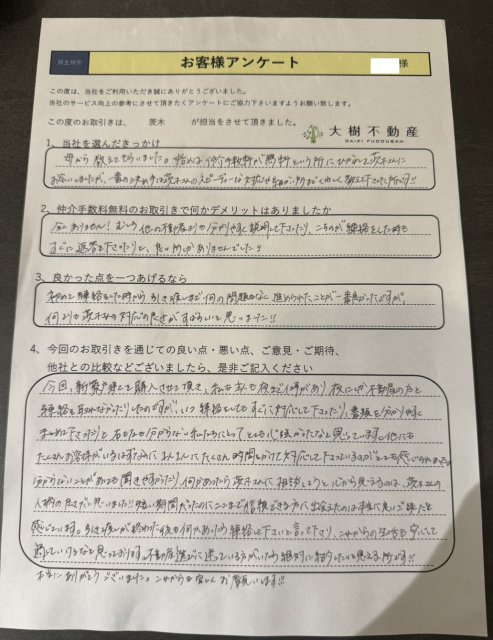 資金無用
お客様アンケート
様
この度は、当社をご利用いただき誠にありがとうございました。
当社のサービス向上の参考にさせて頂きたくアンケートにご協力下さいますようお願い致します。
この度のお取引きは、 茨木 が担当をさせて頂きました。
大樹不動産
DAIKI FUDOUSAN
1、当社を選んだきっかけ
母から教えてもらいました。始めは仲介手数料が無料という所にひかれて茨木さんに
お会いしましたが、一番の決め手は茨木さんのスピーディーな対応や細かい所までくわしく教えて下さった所です!!
2、仲介手数料無料のお取引きで何かデメリットはありましたか
全くありません!むしろ他の不動産よりも分かりやすく説明して下さったり、こちらが連絡をした時も
すぐに返答を下さったりと、良い所しかありませんでした!!
3、良かった点を一つあげるなら
初めて連絡をした時から引き渡しまで何の問題もなく進められたことが一番良かったですが、
何よりも茨木さんの対応の良さがすばらしいと思いました!!
4、今回のお取引を通じての良い点・悪い点、ご意見・ご期待、
他社との比較などございましたら、是非ご記入ください
今回、新築戸建てを購入させて頂き、私も夫も夜まで仕事があり夜にしか不動産の方と
連絡を取れなかったりしたのですが、いつ連絡をしてもすぐに対応して下さったり、書類を分かりやすく
まとめて下さったりと右も左も分からない私たちにとってとても心強かったなと思っています。他にも
たくさんお客様がいるはずなのにほんとにたくさん時間をかけて対応して下さっているのがとても感じられました。
分からないことがあっても聞きやすかったり、何かあったら茨木さんに相談しようと心から思えるのは、茨木さんの
人柄の良さだと思いました!!短い期間だったのにここまで信頼できる方に出会えたのは本当に良いご縁だと
感じています。引き渡しが終わった後も何かあったら連絡して下さいと言って下さり、これからの生活も安心して
過ごしていけるなと思っております。不動産選びに迷っている方がいたら絶対に紹介したいと思える所です!!
本当にありがとうございました。これからも宜しくお願いします!!